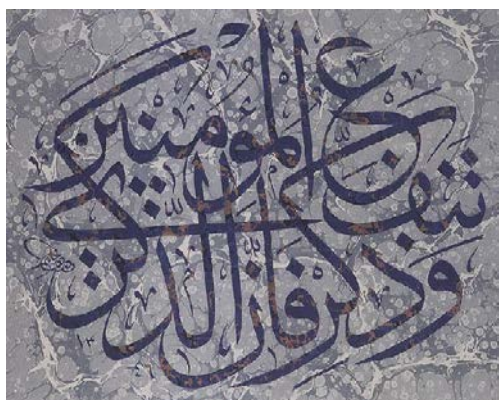 وَذَكِّرْ فَإِنَّ الذِّكْرَى
تَنفَعُ الْمُؤْمِنِينَ